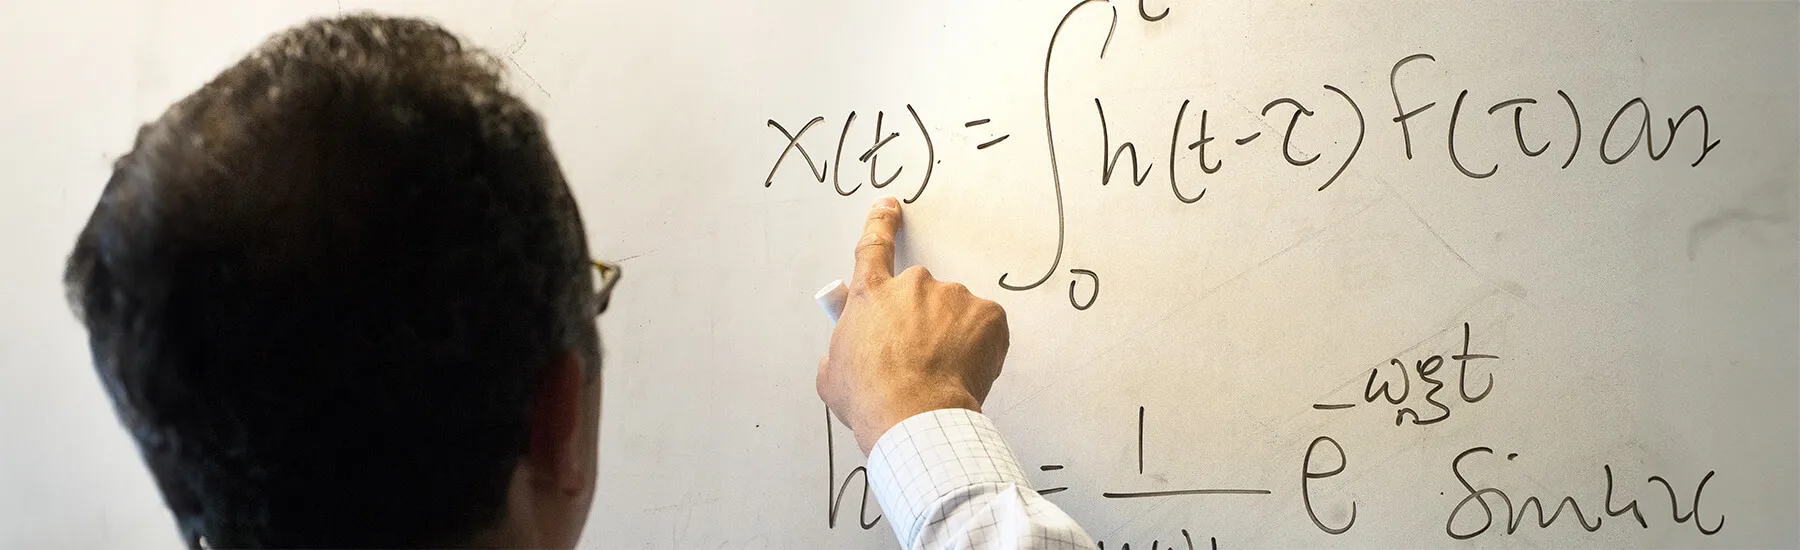 x(t) = ∫₀ᵗ h(t-τ) f(τ) dτ
h = 1 e^(-ωₙξt) sin